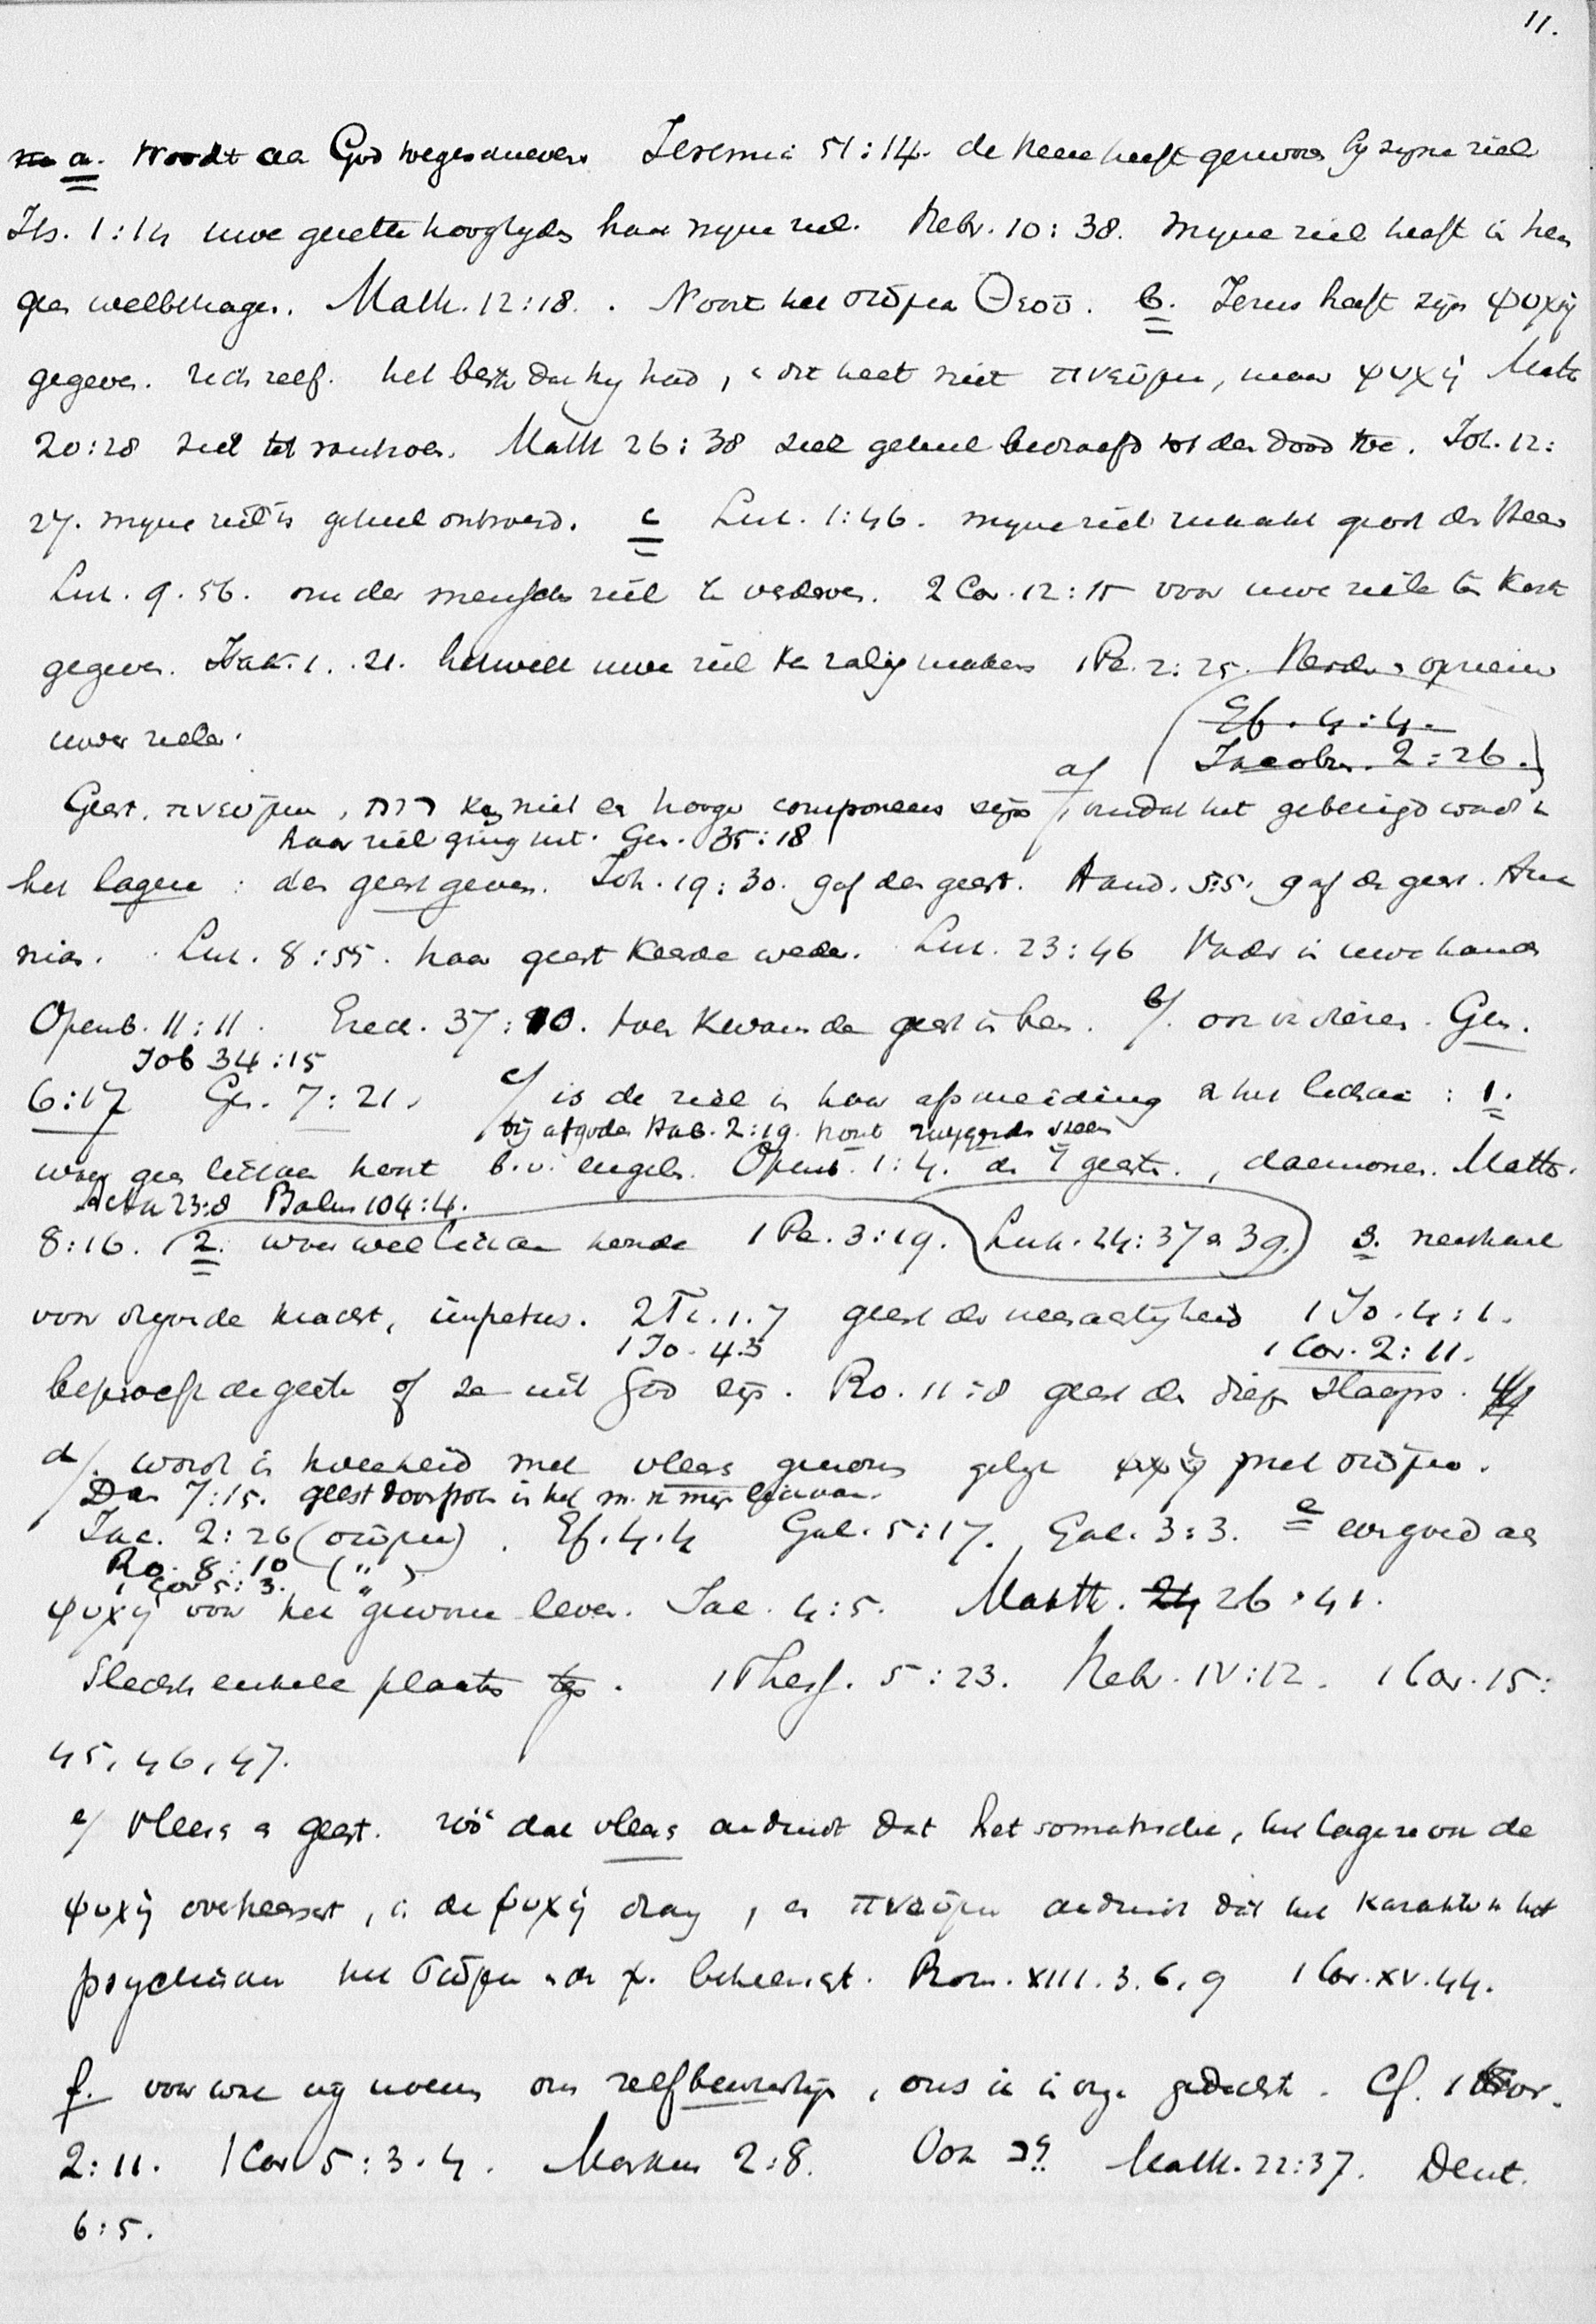 11.
a. Wordt aan God toegeschreven Jeremia 51:14. de Heere heeft gezworen by zyne ziel
Jes. 1:14 uwe gezette hoogtyden haat myne ziel. Hebr. 10:38. myne ziel heeft in hem
geen welbehagen. Matth. 12:18. . Nooit het σῶμα Θεοῦ. b. Jezus heeft zijn ψυχή
gegeven. zich zelf. het beste dat hy had, en dit heet niet πνεῦμα, maar ψυχή Matth
20:28 ziel tot rantsoen. Matth 26:38 ziel geheel bedroefd tot den dood toe. Joh. 12:
27. myne ziel is geheel ontroerd. c Luk. 1:46. myne ziel maakt groot den Heer
Luk. 9.56. om der menschen ziel te verderven. 2 Cor. 12:15 voor uwe ziele ten koste
gegeven. Jak. 1. 21. hetwelk uwe ziel kan zalig maken 1 Pe. 2:25. Herder en opziener
uwer zielen.
Ef. 4:4.
Jacobus. 2:26.
Geest. πνεῦμα, רוח kan niet een hooger component zijn a/, omdat het gebezigd wordt in
haar ziel ging uit. Gen. 35:18
het lagere : den geest geven. Joh. 19:30. gaf den geest. Hand. 5:5. gaf den geest. Ana
nias. Luk. 8:55. haar geest keerde weder. Luk. 23:46 Vader in uwe handen
Openb. 11:11. Ezech. 37:10. toen kwam de geest in hen. b/. ook in dieren. Gen.
Job 34:15
6:17 Gen. 7:21. c/ is de ziel in haar afscheiding van het lichaam : 1.
bij afgoden Hab. 2:19. hout zwijgende steen
waar geen lichaam hoort b.v. engelen. Openb. 1:4. de 7 geesten., daemonen. Matth.
Acta 23:8 Psalm 104:4.
8:16. 2. waar wel lichaam hoorde 1 Pe. 3:19. Luk. 24:37 en 39. 3. neerhaal
voor drijvende kracht, impetus. 2 Ti. 1.7 geest der vreesachtigheid 1 Jo. 4:1.
1 Jo. 4.3 1 Cor. 2:11.
beproeft de geesten of ze uit God zijn. Ro. 11:8 geest des diepen slaaps.
d/. wordt in tweeheid met vlees genomen gelijk ψυχή met σῶμα.
Dan 7:15. geest doorstoken in het m. v. mijn lichaam.
Jac. 2:26 (σῶμα). Ef. 4.4 Gal. 5:17. Gal. 3:3. e evengoed als
Ro. 8:10 (")
1 Cor 5:3. "
ψυχή voor het gewone leven. Jac. 4:5. Matth. 24 26:41.
Slechts enkele plaatsen . 1 Thess. 5:23. Hebr. IV:12. 1 Cor. 15:
45, 46, 47.
e/ vlees en geest. zóó dat vlees aanduidt dat het somatische, het lagere van de
ψυχή overheerscht, in de ψυχή drang, en πνεῦμα aanduidt dat het karakter v. het
psychische het σῶμα en de ψ. beheerscht. Rom. XIII. 3. 6. 9 1 Cor. XV. 44.
f. voor wat wij noemen ons zelfbewustzijn, ons ik in onze gedachte. Cf. 1 Cor.
2:11. 1 Cor 5:3.4. Markus 2:8. Ook לב? Matth. 22:37. Deut.
6:5.